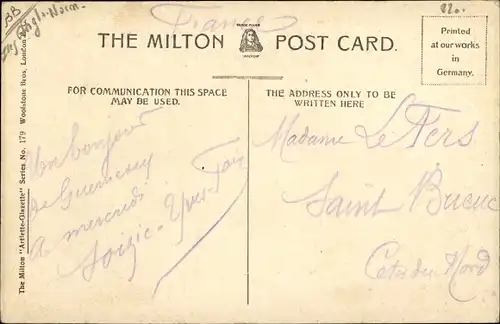 BB
Anglo-Norm.
France
220.
THE MILTON POST CARD.
TRADE MARK
"MILTON"
Printed
at our works
in
Germany.
FOR COMMUNICATION THIS SPACE
MAY BE USED.
THE ADDRESS ONLY TO BE
WRITTEN HERE
The Milton "Artlette-Glazette" Series No. 179 Woolstone Bros, London
Un bonjour
de Guernesey
A mercredi
Loizic - Yves
Madame Le Fers
Saint Brieuc
Cotes du Nord